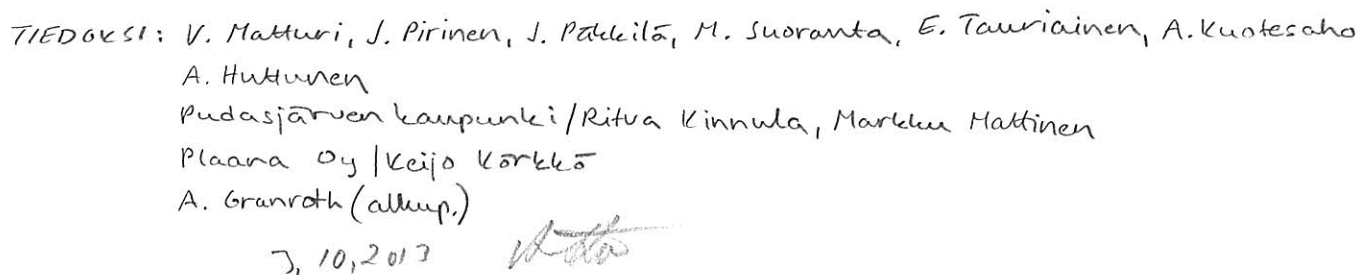 TIEDOKSI: V. Matturi, J. Pirinen, J. Päkkilä, M. Suoranta, E. Tauriainen, A. Kuotesaho
A. Huttunen
Pudasjärven kaupunki/Ritva Kinnula, Markku Mattinen
Plaana Oy/Keijo Körkkö
A. Granroth (alkup.)
3,10,2013